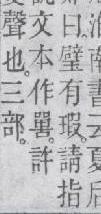 南書云夏后
曰璧有瑕請指
文本作許
聲也。三部。